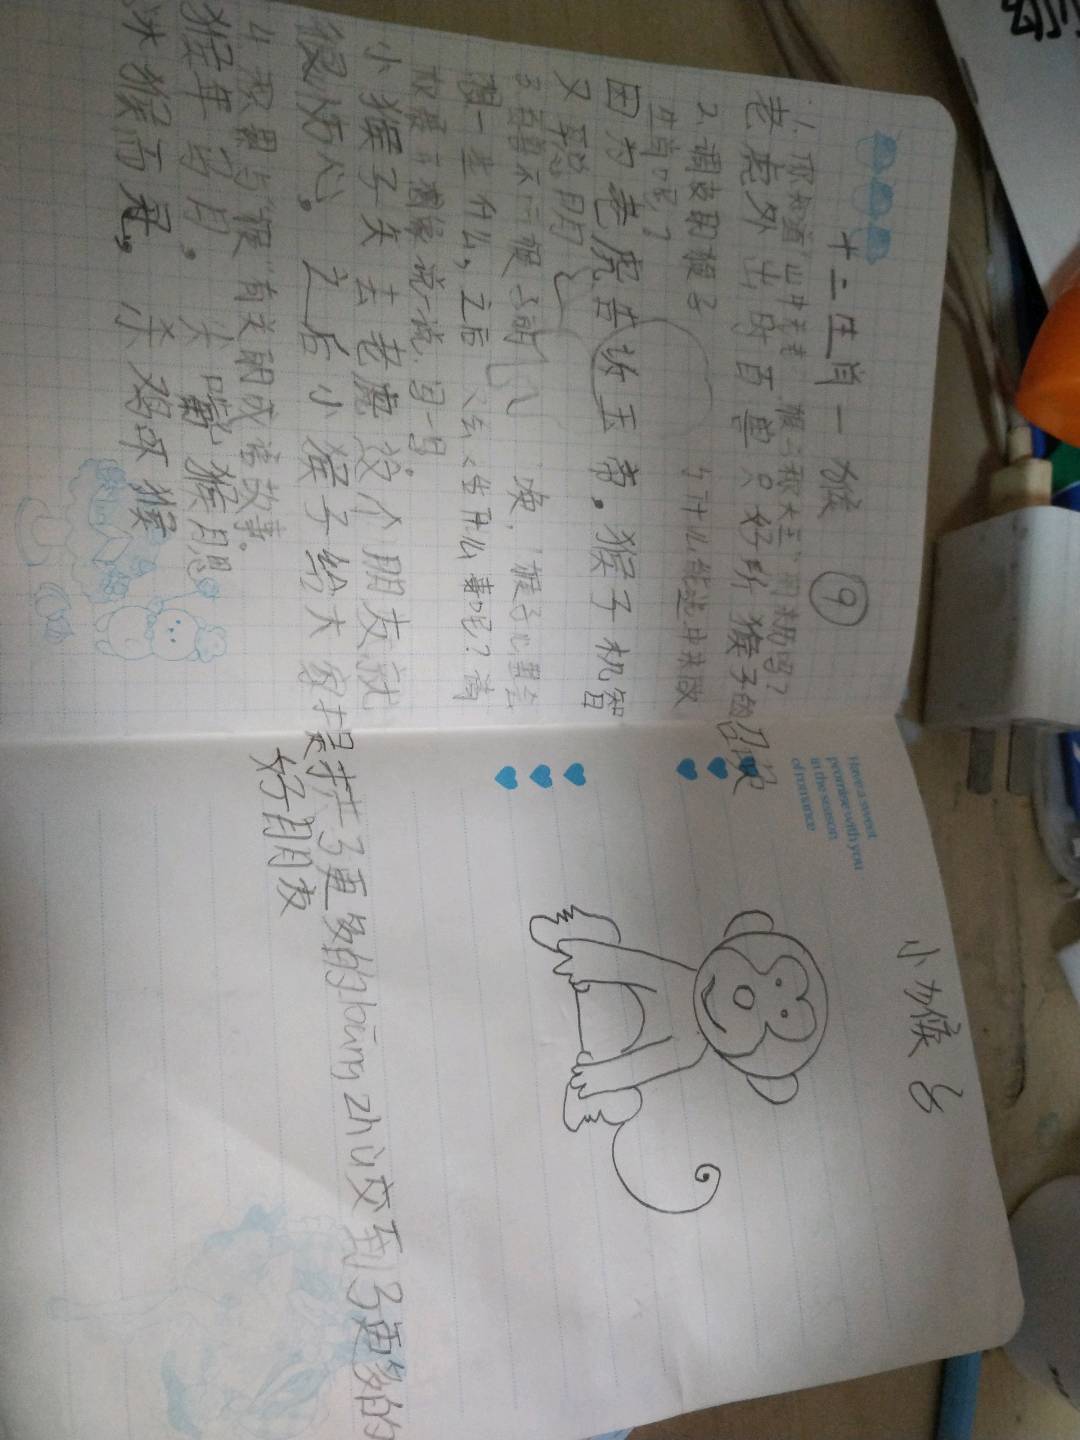 十二生肖一猴 ⑨
1.你知道"山中无老虎,猴子称大王"的来历吗?
老虎外出时百兽只好听猴子的召唤
2.调皮的猴子 为什么能选中来做
生肖呢?
因为老虎告诉玉帝。猴子机智
又聪明
唉,猴子心里会
想一些什么,之后 会发生什么事呢?请
你展开想象说一说,写一写
小猴子失去老虎这个朋友,就
很伤心。之后小猴子给大家提供了更多的bāng zhù交到了更多的
好朋友
4.积累与"猴"有关的成语故事。
猴年马月。尖嘴猴腮
沐猴而冠。杀鸡吓猴
Have a sweet
promise with you
in the season
of romance
小猴子